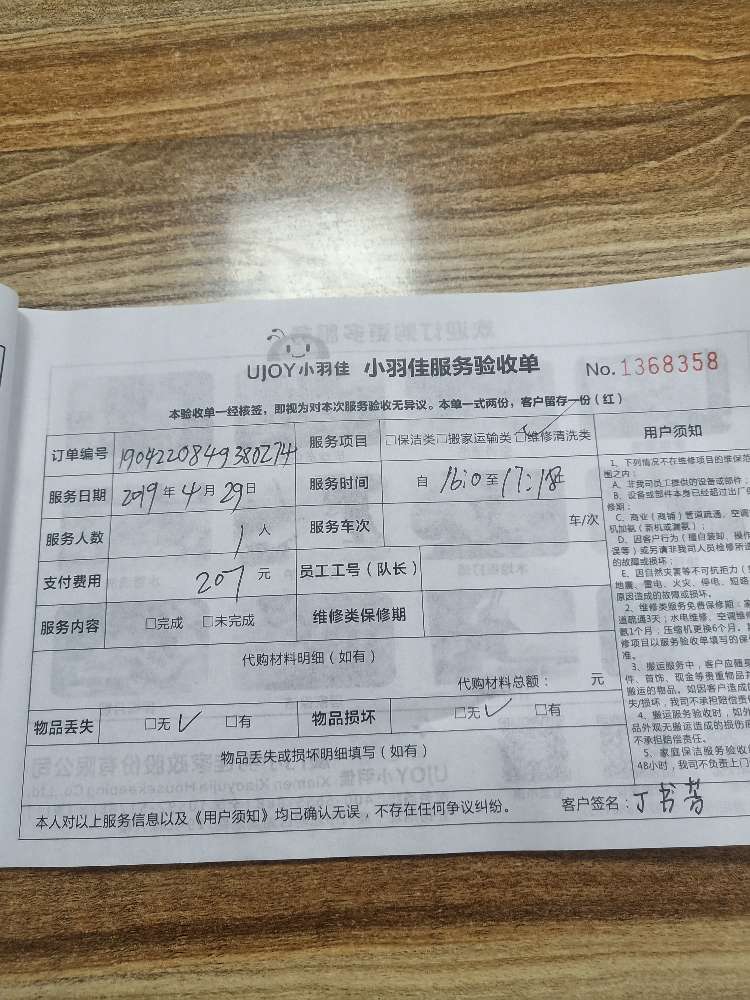 UJOY小羽佳 小羽佳服务验收单 No.1368358
本验收单一经核签，即视为对本次服务验收无异议。本单一式两份，客户留存一份（红）
订单编号 1904220849380274 服务项目 □保洁类□搬家运输类□维修清洗类 用户须知
服务日期 2019年4月29日 服务时间 自 16:10 至 17:18
服务人数 1 人 服务车次 车/次
支付费用 207 元 员工工号（队长）
服务内容 □完成 □未完成 维修类保修期
代购材料明细（如有）
代购材料总额： 元
物品丢失 □无 √ □有 物品损坏 □无 √ □有
物品丢失或损坏明细填写（如有）
本人对以上服务信息以及《用户须知》均已确认无误，不存在任何争议纠纷。 客户签名：丁书芳
1、下列情况不在维修项目的维保范
围之内：
A、非我司员工提供的设备或部件；
B、设备或部件本身已经超过出厂
修期；
C、商业（商铺）管道疏通、空调
机加氨（新机或漏氨）；
D、因客户行为（擅自装卸、操作
误等）或另请非我司人员检修所造
的故障或损坏。
E、因自然灾害等不可抗拒力（
地震、雷电、火灾、停电、短路
原因造成的故障或损坏。
2、维修类服务免费保修期：
道疏通3天；水电维修、空调维
氨1个月；压缩机更换6个月。
修项目以服务验收单填写的保
准。
3、搬运服务中，客户应随
件、首饰、现金等贵重物品
搬运的物品。如因客户造成
失/损坏，我司不承担赔偿责
4、搬运服务验收时，如外
品外观无搬运造成的损伤
不承担赔偿责任。
5、家庭保洁服务验收
48小时，我司不负责上门